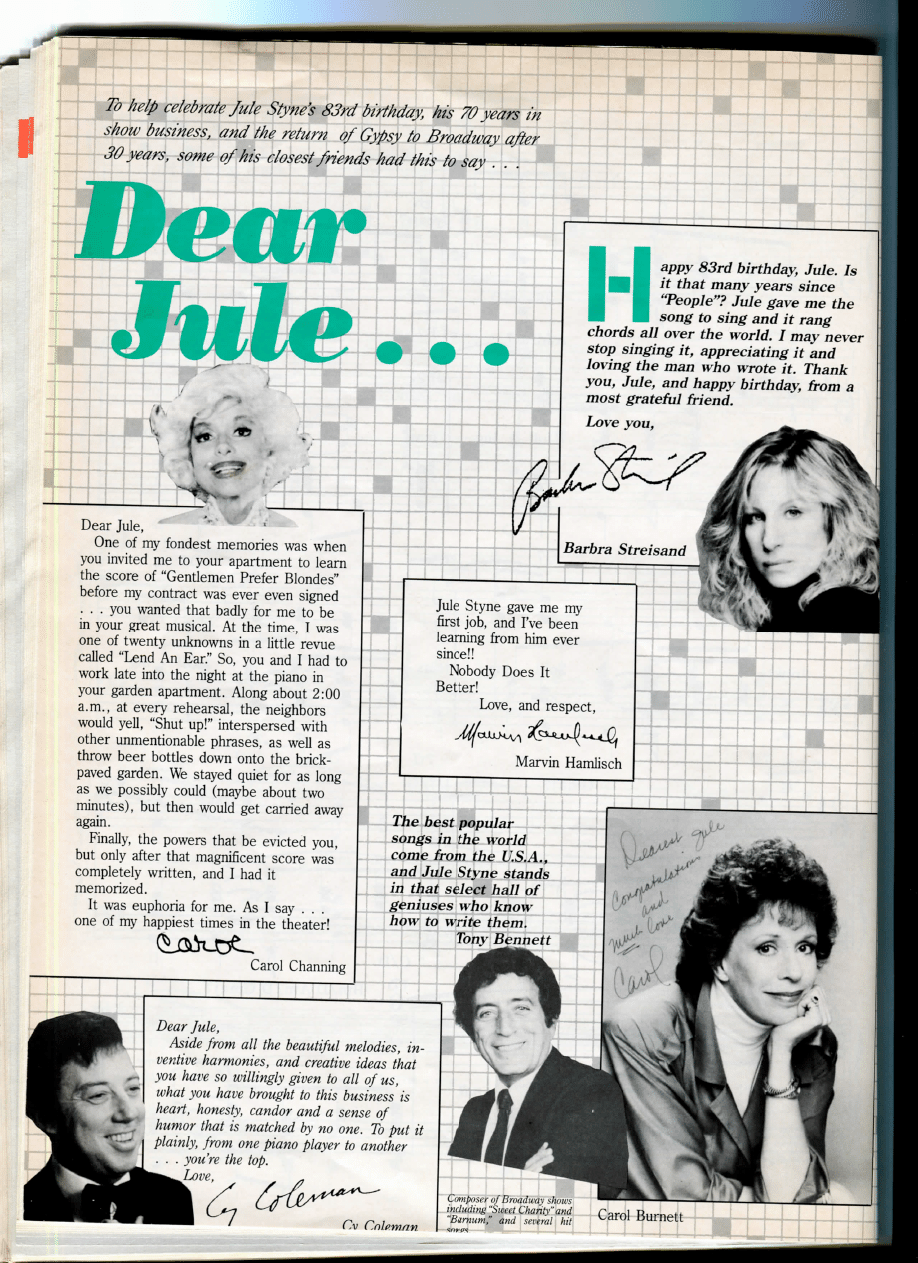 To help celebrate Jule Styne's 83rd birthday, his 70 years in
show business, and the return of Gypsy to Broadway after
30 years, some of his closest friends had this to say . . .
Dear
Jule...
Happy 83rd birthday, Jule. Is
it that many years since
"People"? Jule gave me the
song to sing and it rang
chords all over the world. I may never
stop singing it, appreciating it and
loving the man who wrote it. Thank
you, Jule, and happy birthday, from a
most grateful friend.
Love you,
Barbra Streisand
Barbra Streisand
Dear Jule,
One of my fondest memories was when
you invited me to your apartment to learn
the score of "Gentlemen Prefer Blondes"
before my contract was ever even signed
. . . you wanted that badly for me to be
in your great musical. At the time, I was
one of twenty unknowns in a little revue
called "Lend An Ear." So, you and I had to
work late into the night at the piano in
your garden apartment. Along about 2:00
a.m., at every rehearsal, the neighbors
would yell, "Shut up!" interspersed with
other unmentionable phrases, as well as
throw beer bottles down onto the brick-
paved garden. We stayed quiet for as long
as we possibly could (maybe about two
minutes), but then would get carried away
again.
Finally, the powers that be evicted you,
but only after that magnificent score was
completely written, and I had it
memorized.
It was euphoria for me. As I say . . .
one of my happiest times in the theater!
Carol
Carol Channing
Jule Styne gave me my
first job, and I've been
learning from him ever
since!!
Nobody Does It
Better!
Love, and respect,
Marvin Hamlisch
Marvin Hamlisch
The best popular
songs in the world
come from the U.S.A.,
and Jule Styne stands
in that select hall of
geniuses who know
how to write them.
Tony Bennett
Dearest Jule
Congratulations
and
much love
Carol
Carol Burnett
Dear Jule,
Aside from all the beautiful melodies, in-
ventive harmonies, and creative ideas that
you have so willingly given to all of us,
what you have brought to this business is
heart, honesty, candor and a sense of
humor that is matched by no one. To put it
plainly, from one piano player to another
. . . you're the top.
Love,
Cy Coleman
Cy Coleman
Composer of Broadway shows
including "Sweet Charity" and
"Barnum," and several hit
songs